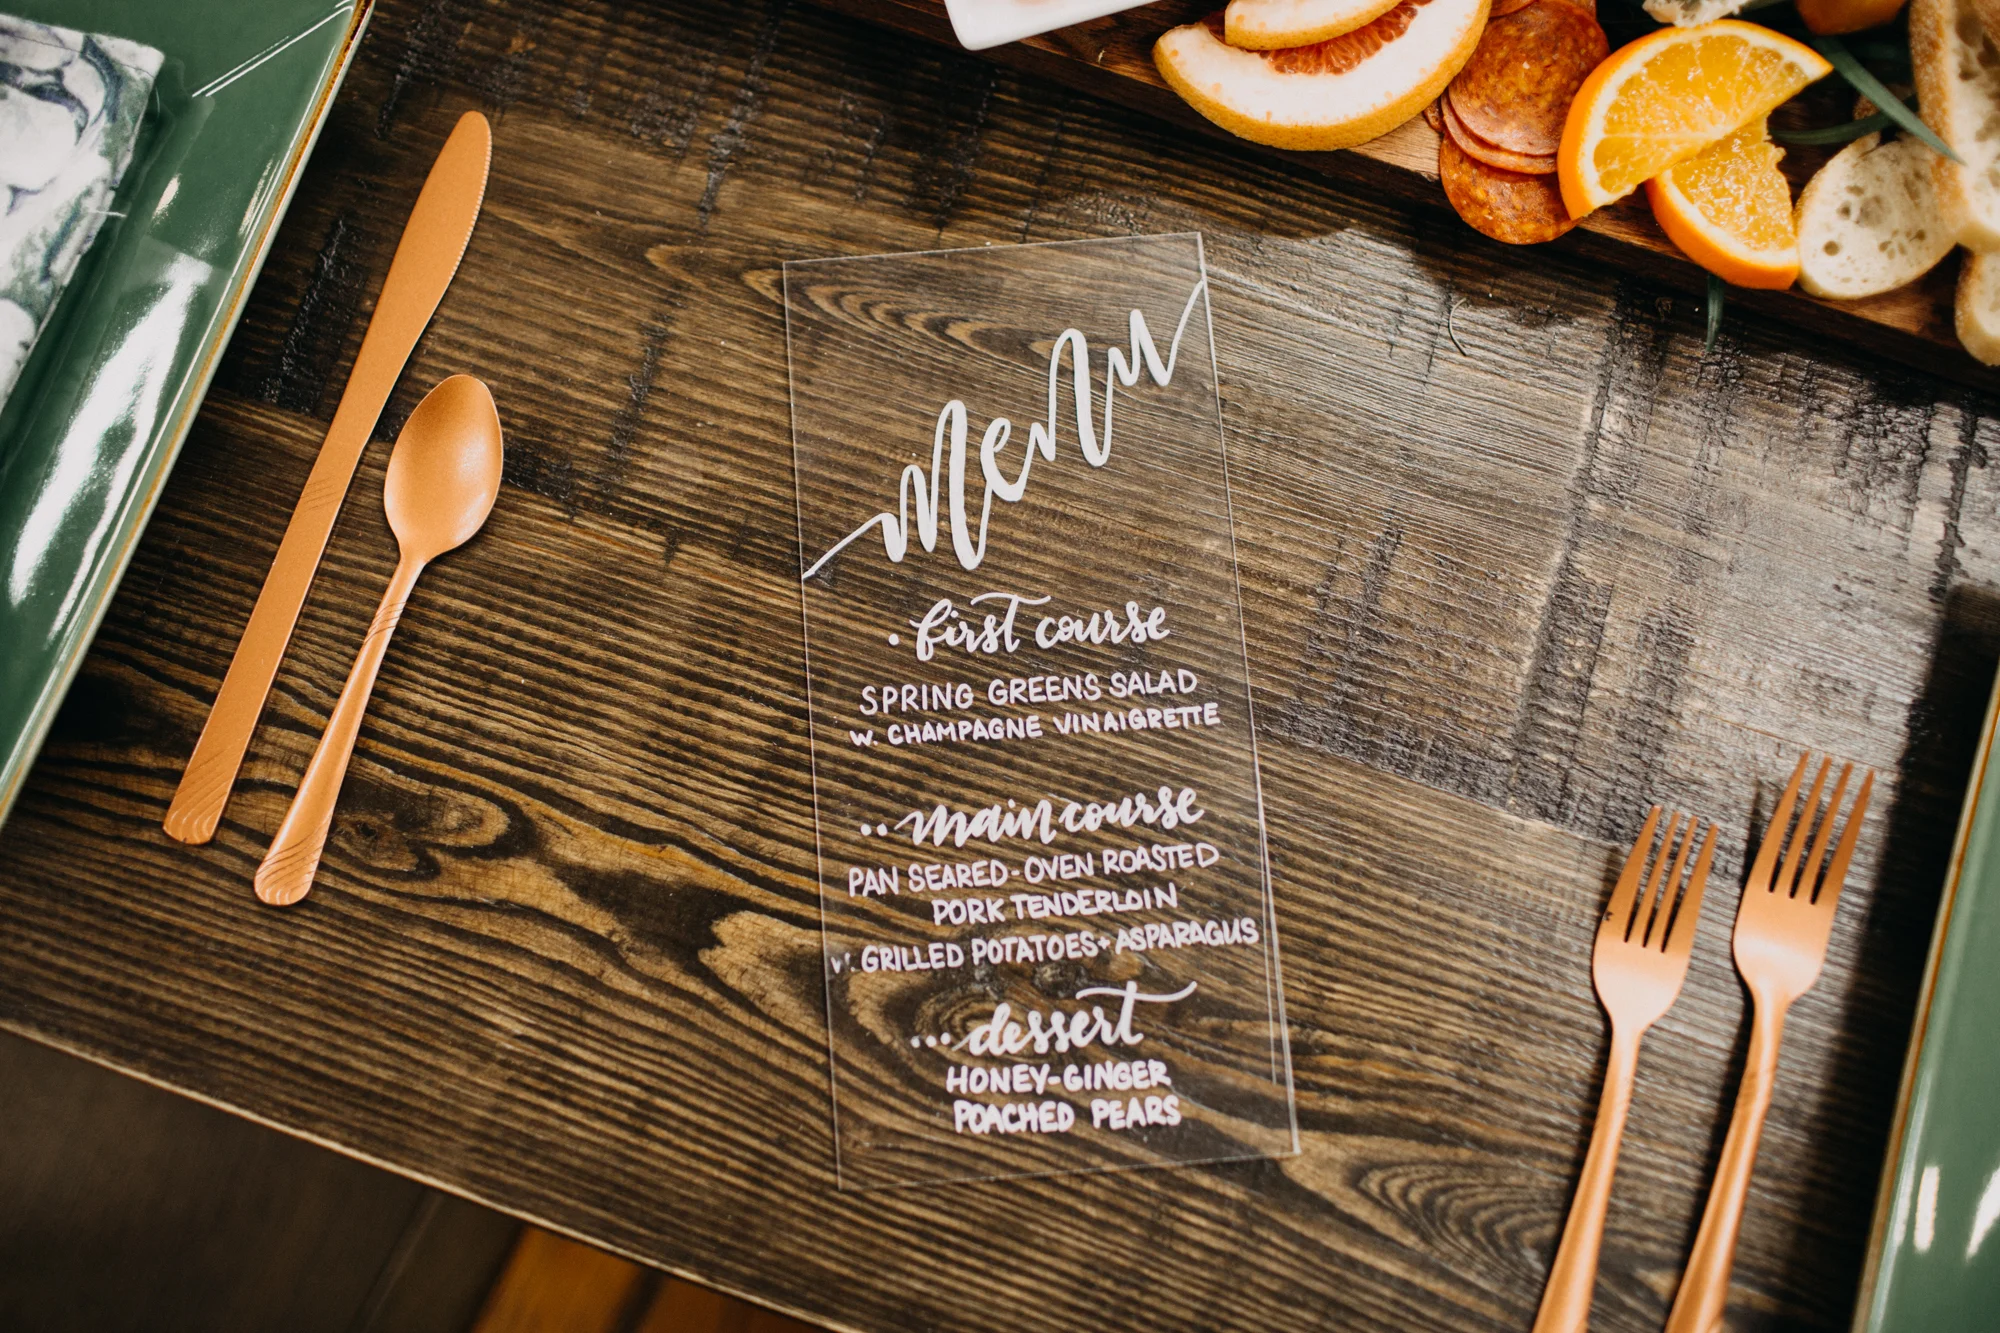 menu
• first course
SPRING GREENS SALAD
W. CHAMPAGNE VINAIGRETTE
•• main course
PAN SEARED-OVEN ROASTED
PORK TENDERLOIN
W. GRILLED POTATOES + ASPARAGUS
••• dessert
HONEY-GINGER
POACHED PEARS